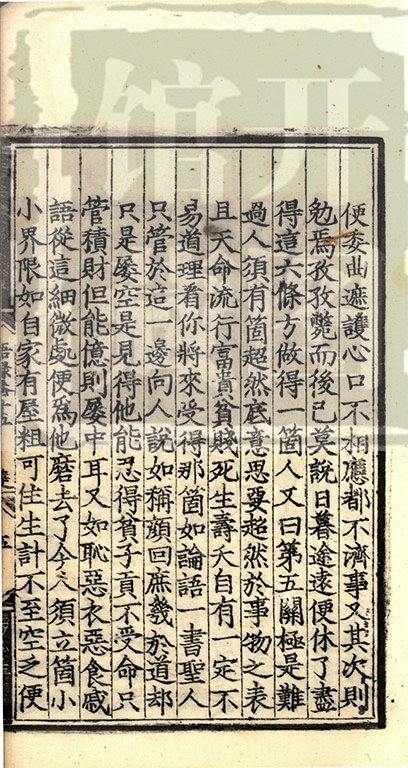 便委曲遮護心口不相應都不濟事又其次則
勉焉孜孜斃而後已莫說日暮途遠便休了盡
得這六條方做得一箇人又曰第五關極是難
過人須有箇超然底意思要超然於事物之表
且天命流行富貴貧賤死生壽夭自有一定不
易道理看你將來受得那箇如論語一書聖人
只管於這一邊向人說如稱顏回庶幾於道却
只是屢空是見得他能忍得貧子貢不受命只
管積財但能億則屢中耳又如恥惡衣惡食戚
語從這細微處便爲他磨去了今人須立箇小
小界限如自家有屋粗可住生計不至空乏便